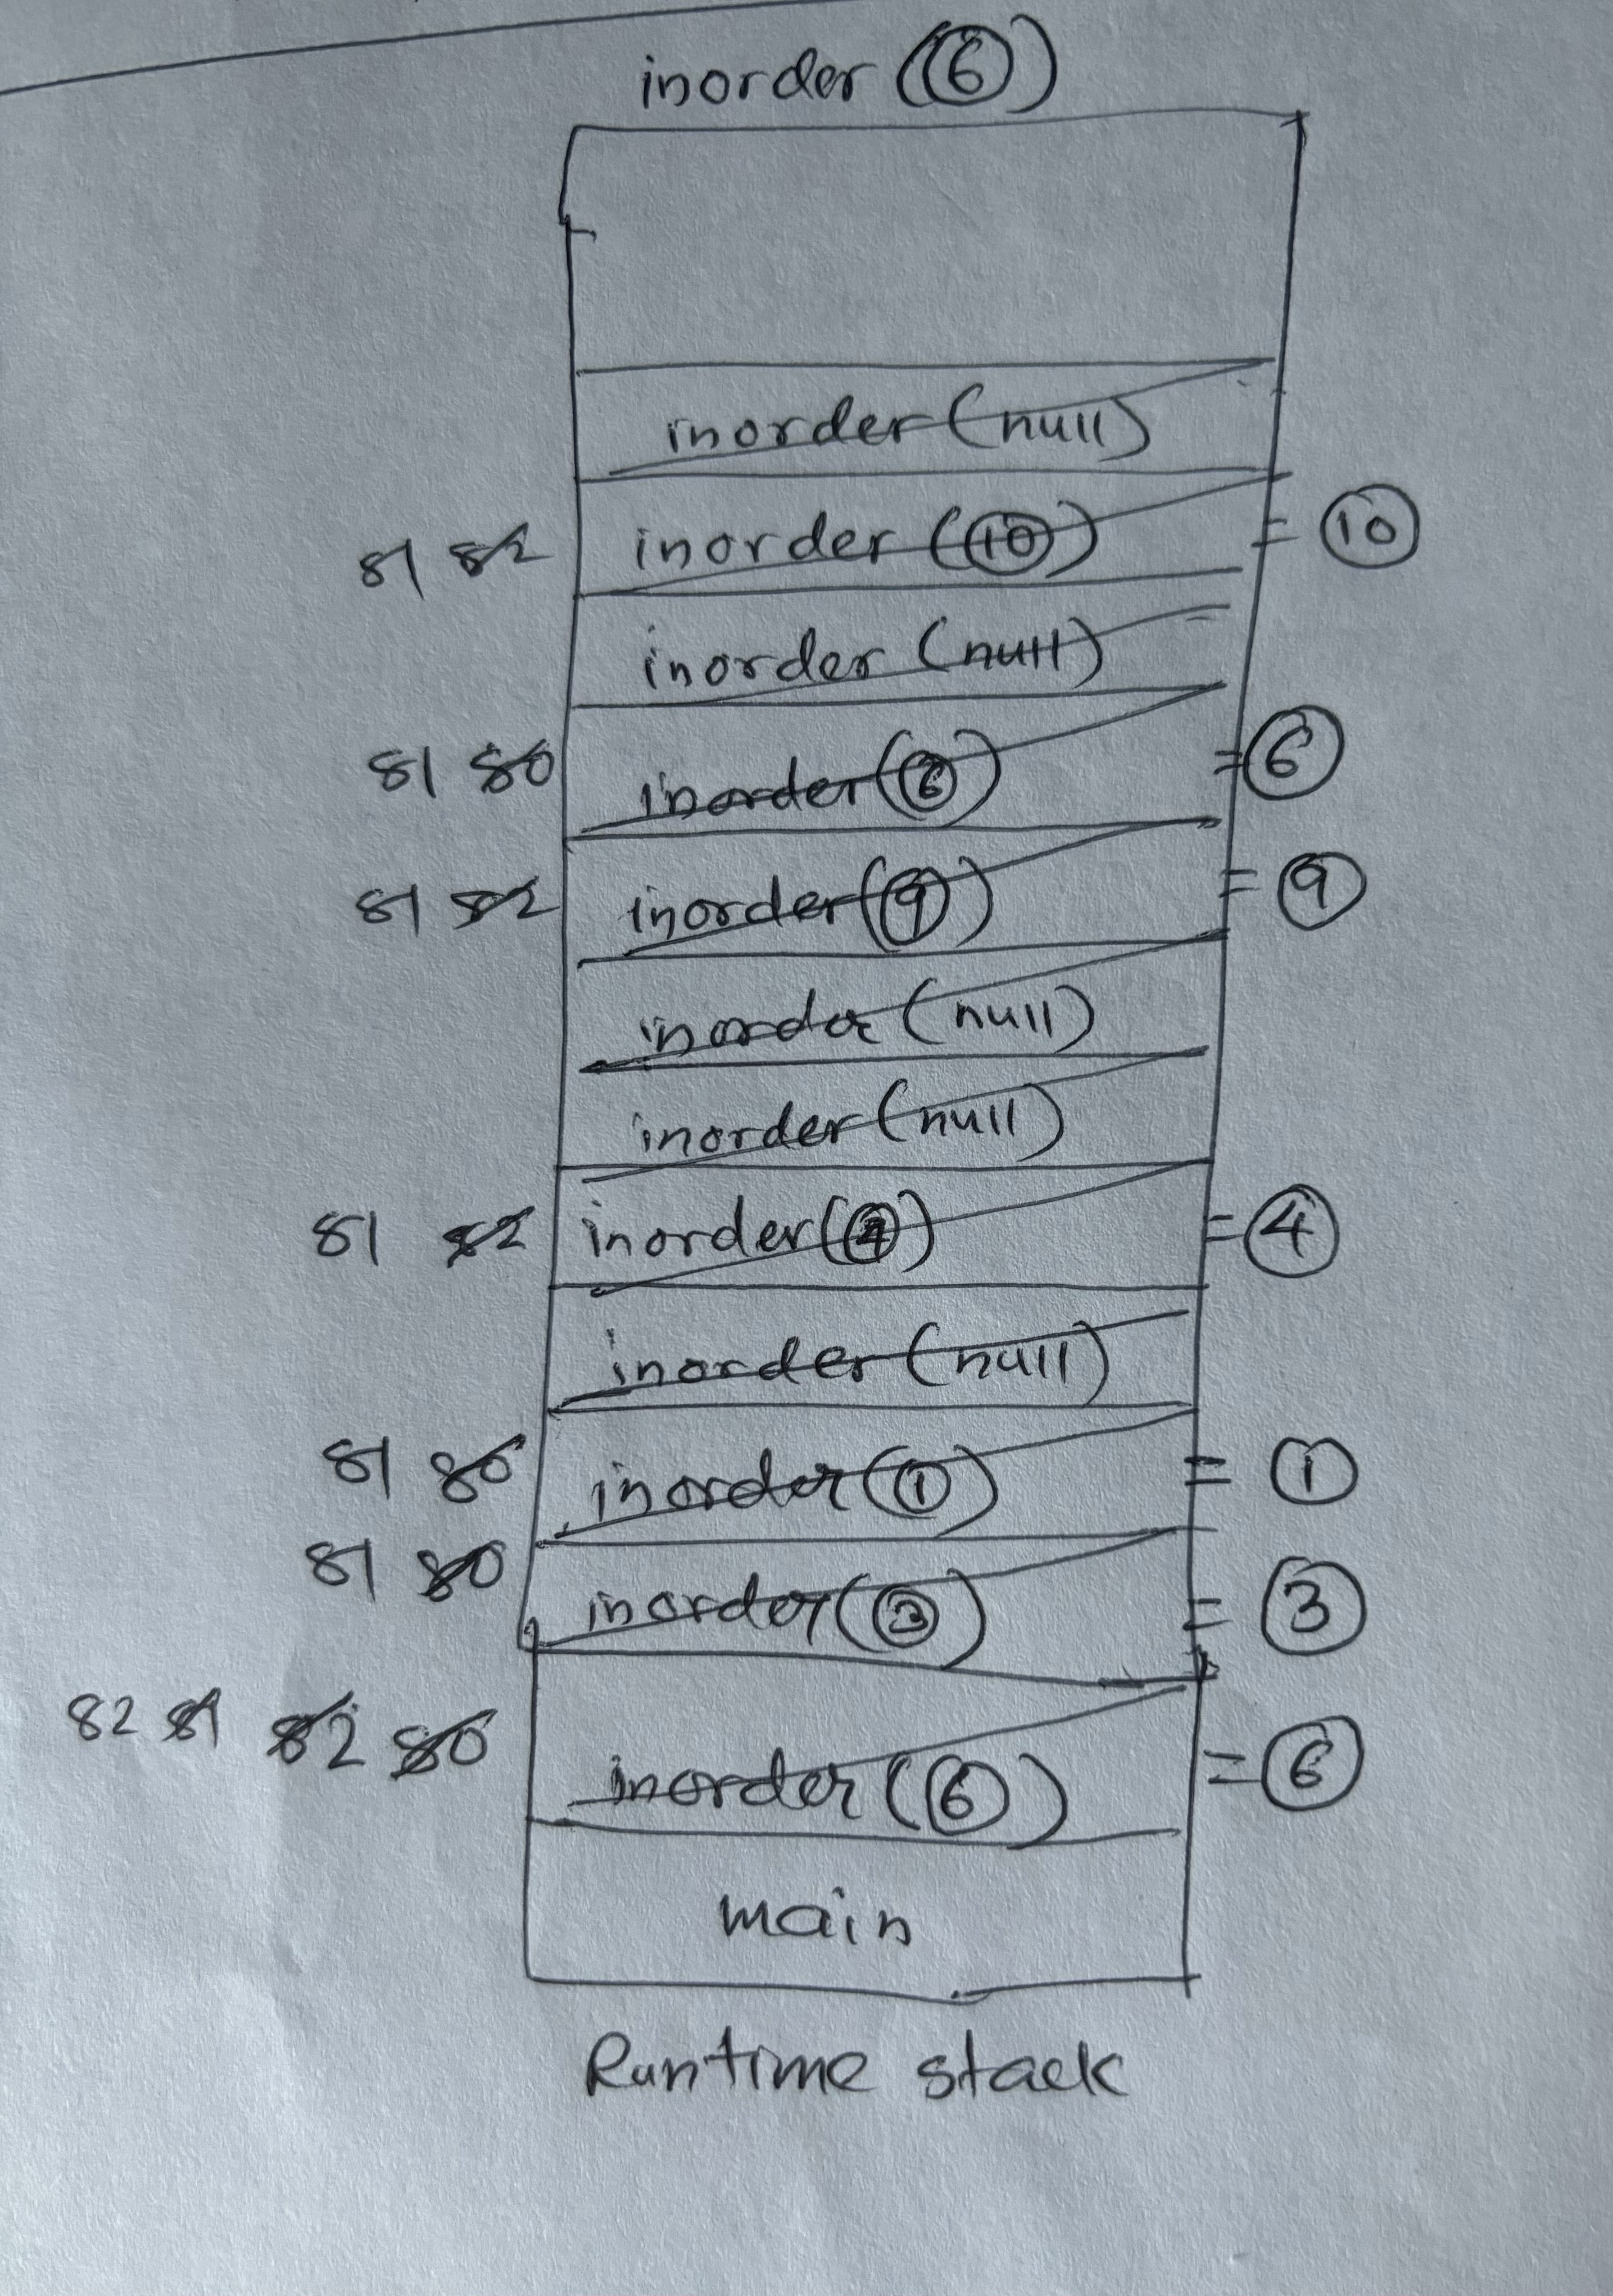 inorder(6)
inorder(null)
81 82 inorder(10) = 10
inorder(null)
81 80 inorder(6) = 6
81 82 inorder(9) = 9
inorder(null)
inorder(null)
81 82 inorder(4) = 4
inorder(null)
81 80 inorder(1) = 1
81 80 inorder(3) = 3
82 81 82 80 inorder(6) = 6
main
Runtime stack